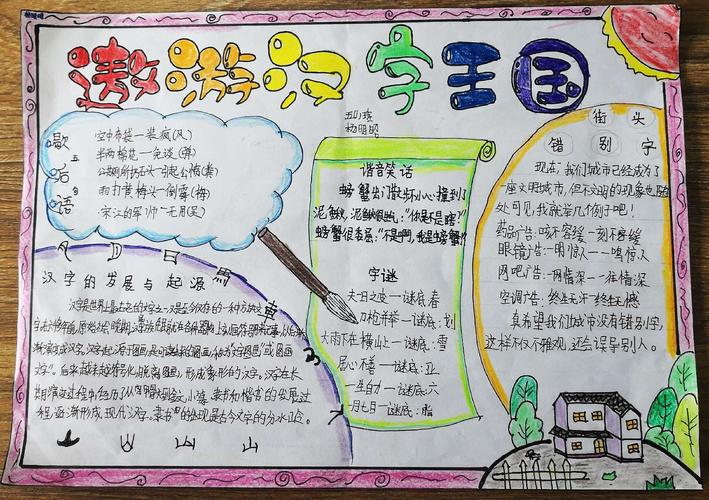 遨游汉字王国
五小2班
杨明明
歇后语
空中布袋—装疯(风)
半两棉花—免谈(弹)
公厕所扔石头—引起公愤(粪)
雨打黄梅头—倒霉(梅)
宋江的军师—无用(吴)
谐音笑话
螃蟹出门散步不小心撞到了
泥鳅,泥鳅很生气说:"你是不是瞎?"
螃蟹很委屈:"不是啊,我是螃蟹"
字谜
夫日之变—谜底:春
刀枪并举—谜底:划
大雨下在横山上—谜底:雪
居心不善—谜底:亚
一生自力—谜底:六
一月七日—谜底:脂
街头
错别字
现在,我们城市已经成为了
一座文明城市,但不文明的现象也随
处可见,我就举几个例子吧!
药品广告:咳不容缓—刻不容缓
眼镜广告:一明惊人—一鸣惊人
网吧广告:一网情深—一往情深
空调广告:终生无汗—终生无憾
真希望我们城市没有错别字,
这样不仅不雅观,还会误导别人。
汉字的发展与起源
汉字是世界上最古老的文字之一
渐演变成汉字。汉字起源于图画
字"。后来越来越符号化,脱离图画,形成象形的汉字。汉字在长
期演变过程中经历了从甲骨文到金文,小篆,隶书和楷书的发展过
程,逐渐形成,现代汉字。"隶书"的出现是古今文字的分水岭。
山